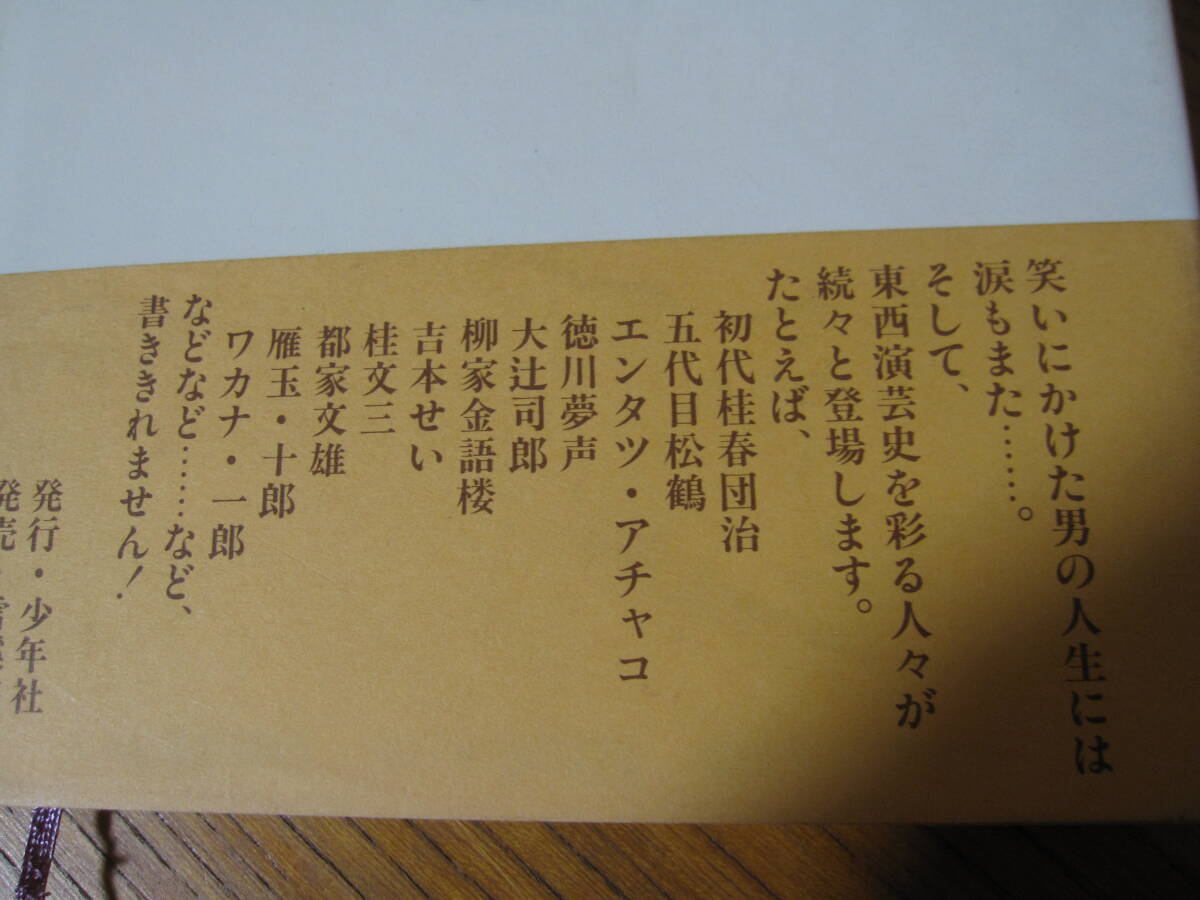 笑いにかけた男の人生には
涙もまた……。
そして、
東西演芸史を彩る人々が
続々と登場します。
たとえば、
初代桂春団治
五代目松鶴
エンタツ・アチャコ
徳川夢声
大辻司郎
柳家金語楼
吉本せい
桂文三
都家文雄
雁玉・十郎
ワカナ・一郎
などなど……など、
書ききれません!
発行・少年社
発売・雪渓